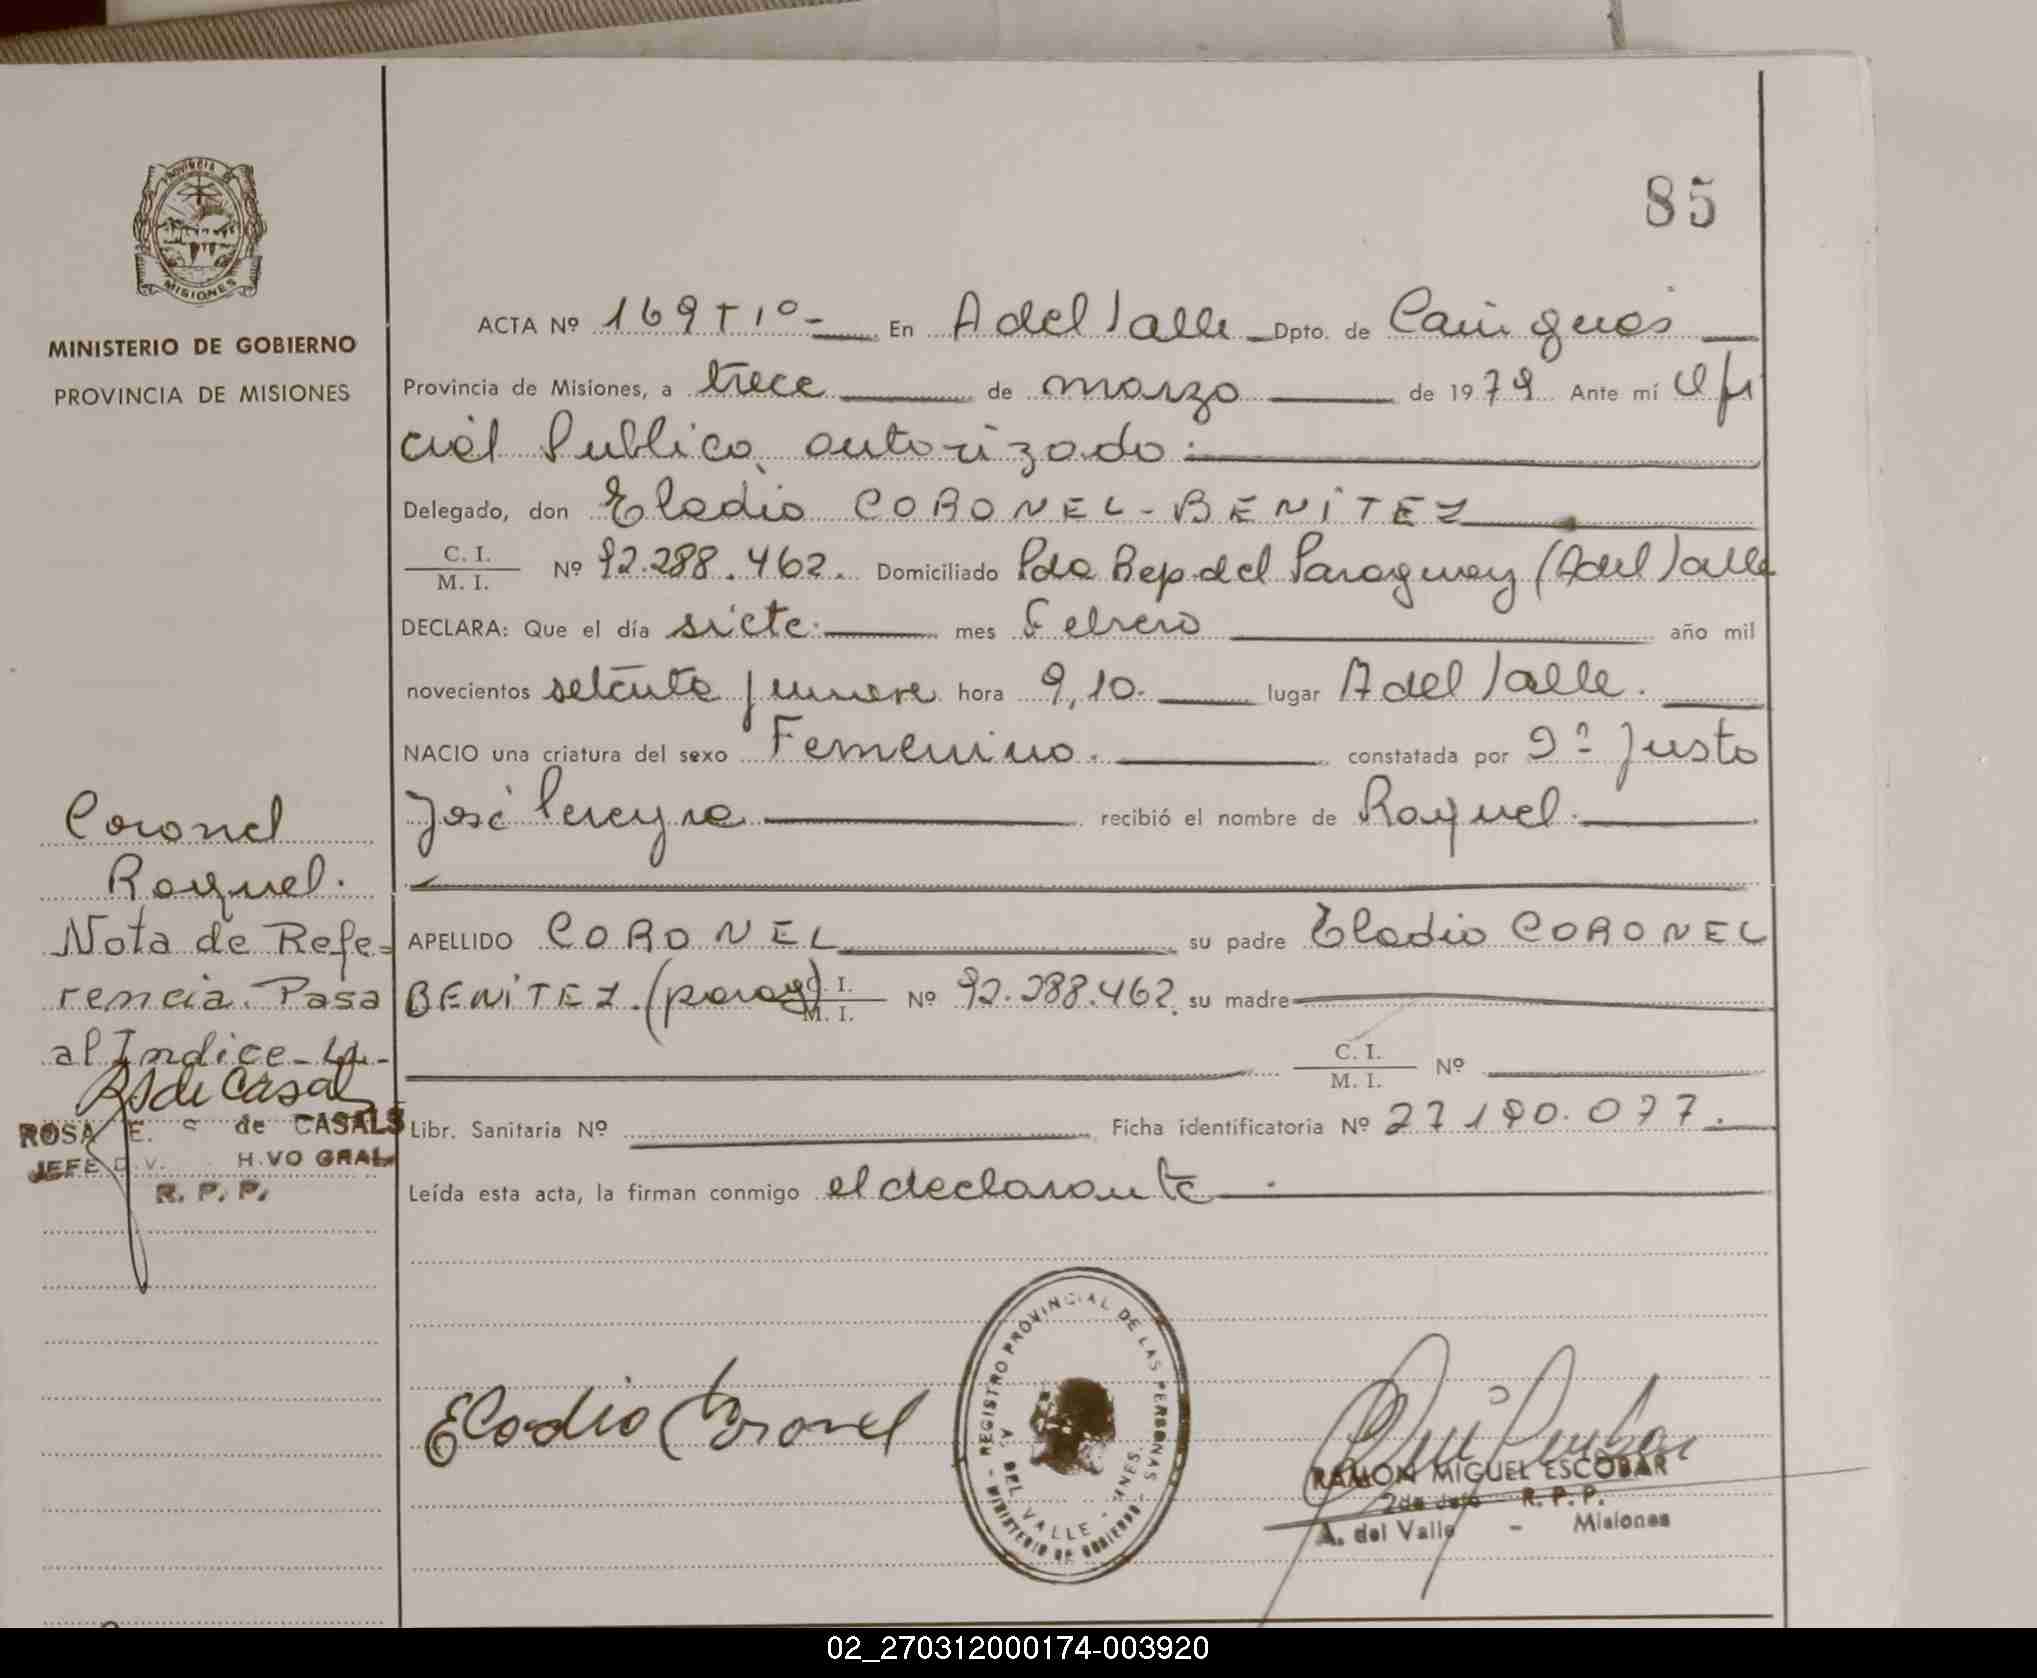 85
PROVINCIA DE
MISIONES
MINISTERIO DE GOBIERNO
PROVINCIA DE MISIONES
ACTA Nº 169 T 1º - En A del Valle Dpto. de Cainguas
Provincia de Misiones, a trece de marzo de 1979 Ante mí Ofi
cial Publico autorizado:
Delegado, don Eladio CORONEL - BENÍTEZ
C. I.
M. I. Nº 92.288.462. Domiciliado Pda Rep. del Paraguay (A del Valle
DECLARA: Que el día siete. mes Febrero año mil
novecientos setenta y nueve hora 9,10. lugar A del Valle.
NACIO una criatura del sexo Femenino. constatada por Dº Justo
José Pereyra recibió el nombre de Raquel.
APELLIDO CORONEL su padre Eladio CORONEL
BENÍTEZ. (parag) C. I.
M. I. Nº 92.288.462. su madre
C. I.
M. I. Nº
Libr. Sanitaria Nº Ficha identificatoria Nº 27190.077.
Leída esta acta, la firman conmigo el declarante
Coronel
Raquel.
Nota de Refe-
rencia. Pasa
al Indice
RS de Casal
ROSA E. S de CASALS
JEFE DIV. H.VO GRAL
R. P. P.
Eladio Coronel
REGISTRO PROVINCIAL DE LAS PERSONAS
MINISTERIO DE GOBIERNO
A. DEL VALLE - NES.
RAMON MIGUEL ESCOBAR
2do Jefe R. P. P.
A. del Valle - Misiones
02_270312000174-003920